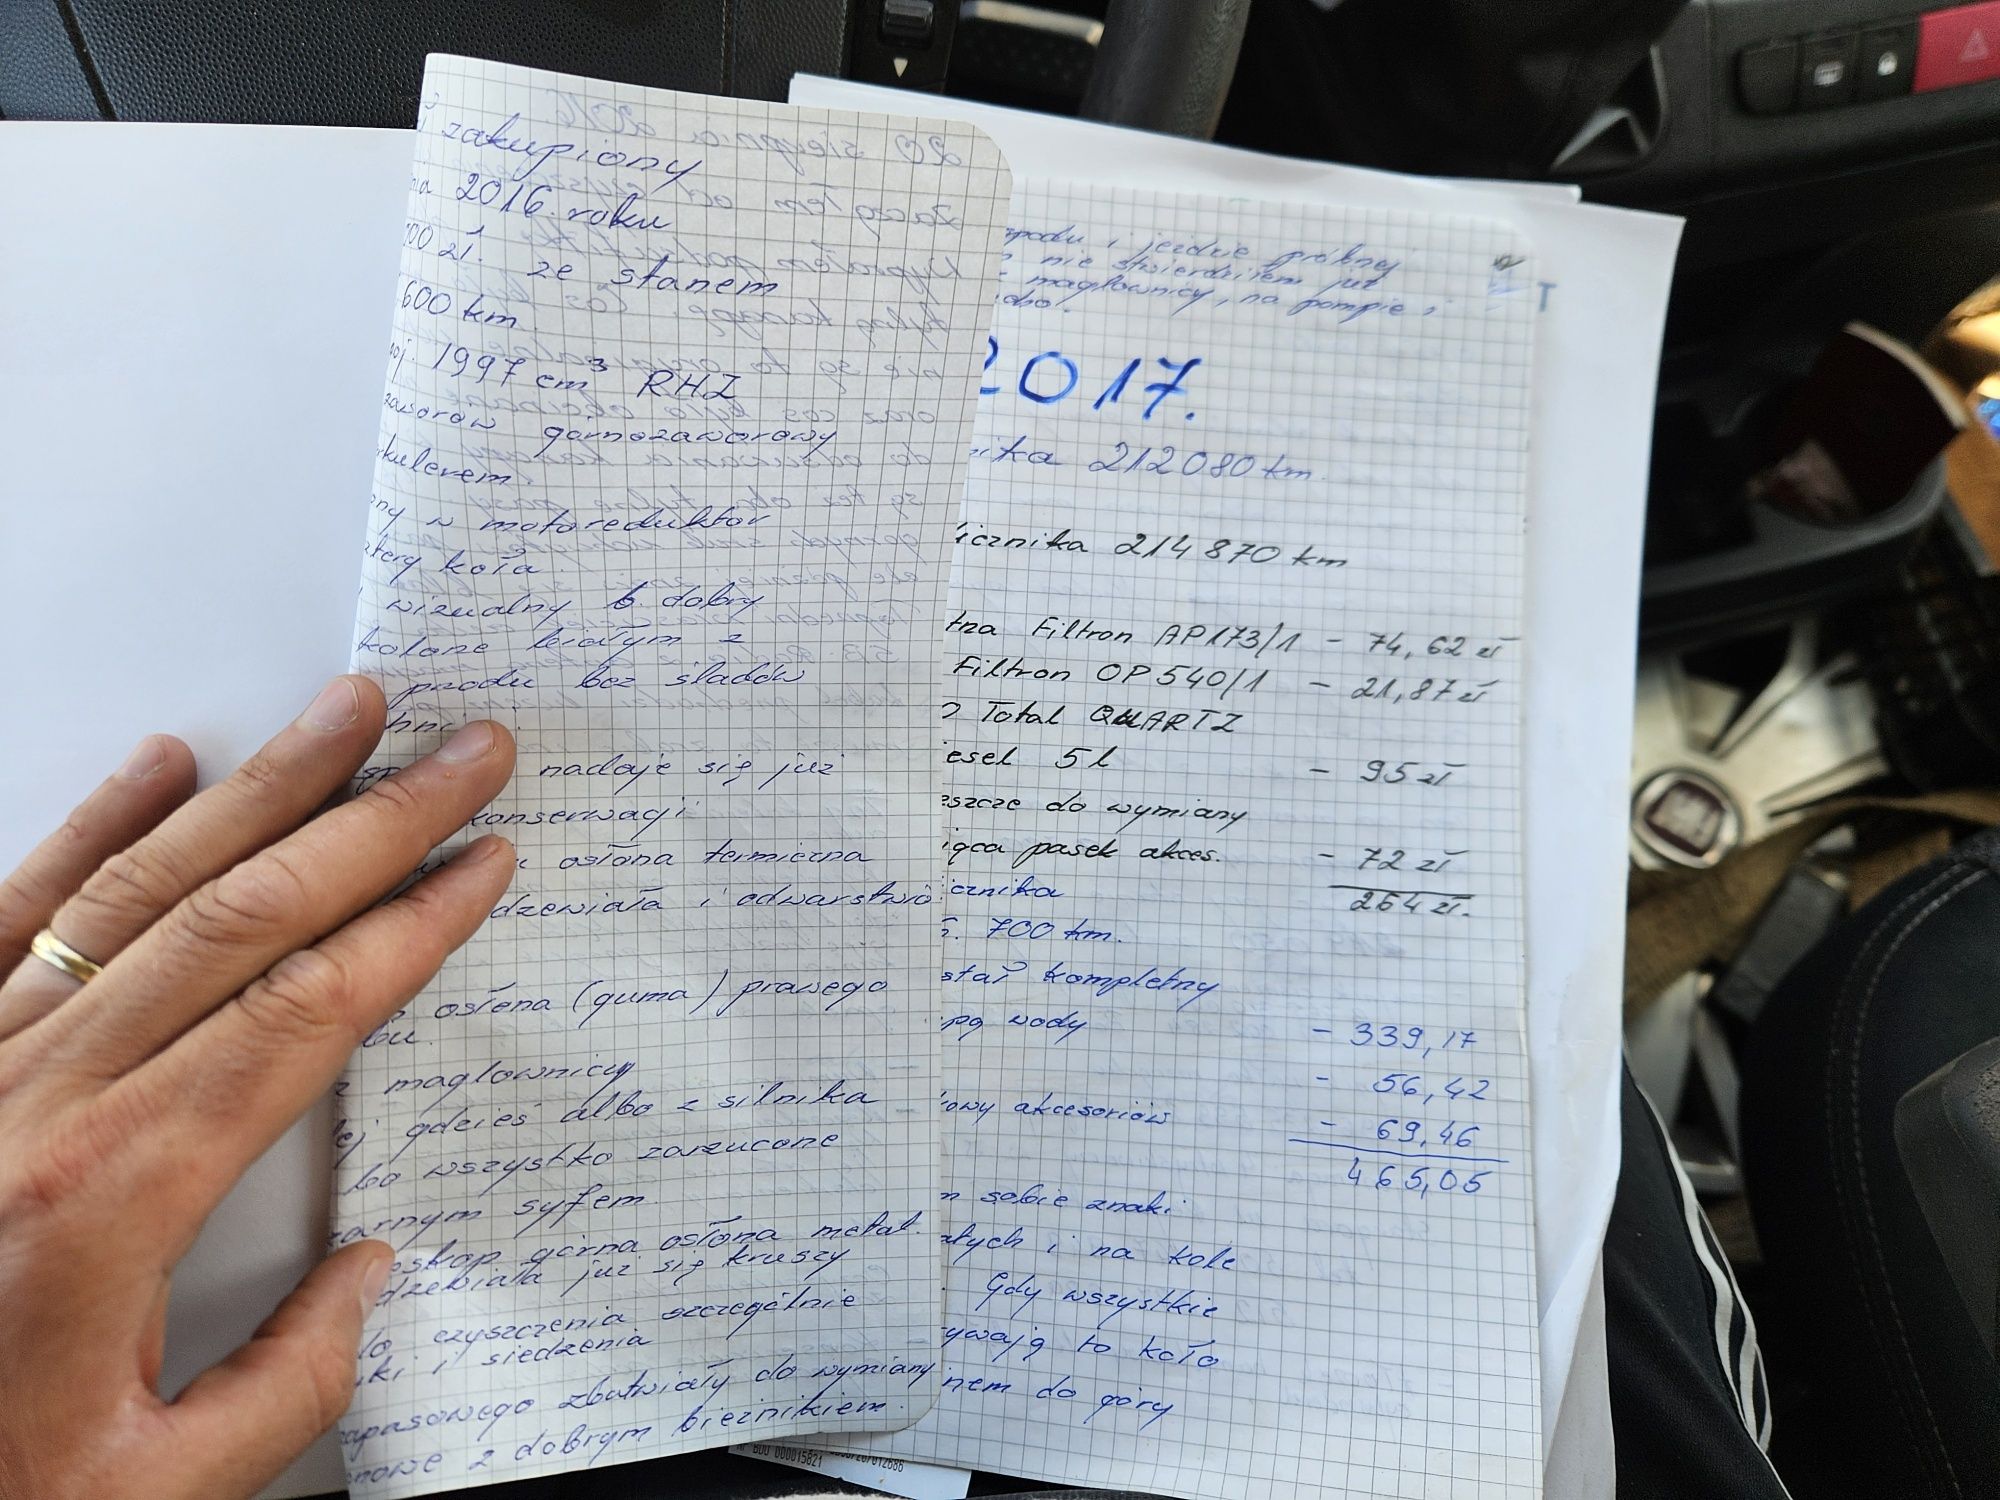 zakupiony
2016 roku
00 zł. ze stanem
600 km.
1997 cm³ RHZ
zaworów górnozaworowy
rkulerem.
ony w motoreduktor
ztery koła.
wizualny b. dobry
kolorze białym z
przodu bez śladów
hni
nadaje się już
konserwacji
osłona termiczna
dzewiała i odwarstwio
osłona (guma) prawego
bu.
z maglownicy
lej gdzieś albo z silnika
bo wszystko zarzucone
zarnym syfem.
eskop górna osłona metal.
dzewiała już się kruszy
do czyszczenia szczególnie
ki i siedzenia
zapasowego zbutwiały do wymiany
onowe z dobrym bieżnikiem.
spodu i jeździe próbnej
nie stwierdziłem już
maglownicy, na pompie i
2017.
nika 212080 km.
licznika 214870 km
tna Filtron AP173/1 - 74,62 zł
Filtron OP540/1 - 21,87 zł
Total QUARTZ
esel 5l - 95 zł
eszcze do wymiany
ąca pasek akces. - 72 zł
icznika 264 zł.
700 km.
stał kompletny
pą wody - 339,17
- 56,42
kowy akcesoriów - 69,46
465,05
m sobie znaki
atych i na kole
. Gdy wszystkie
ywają to koło
nem do góry
BDO 000015821